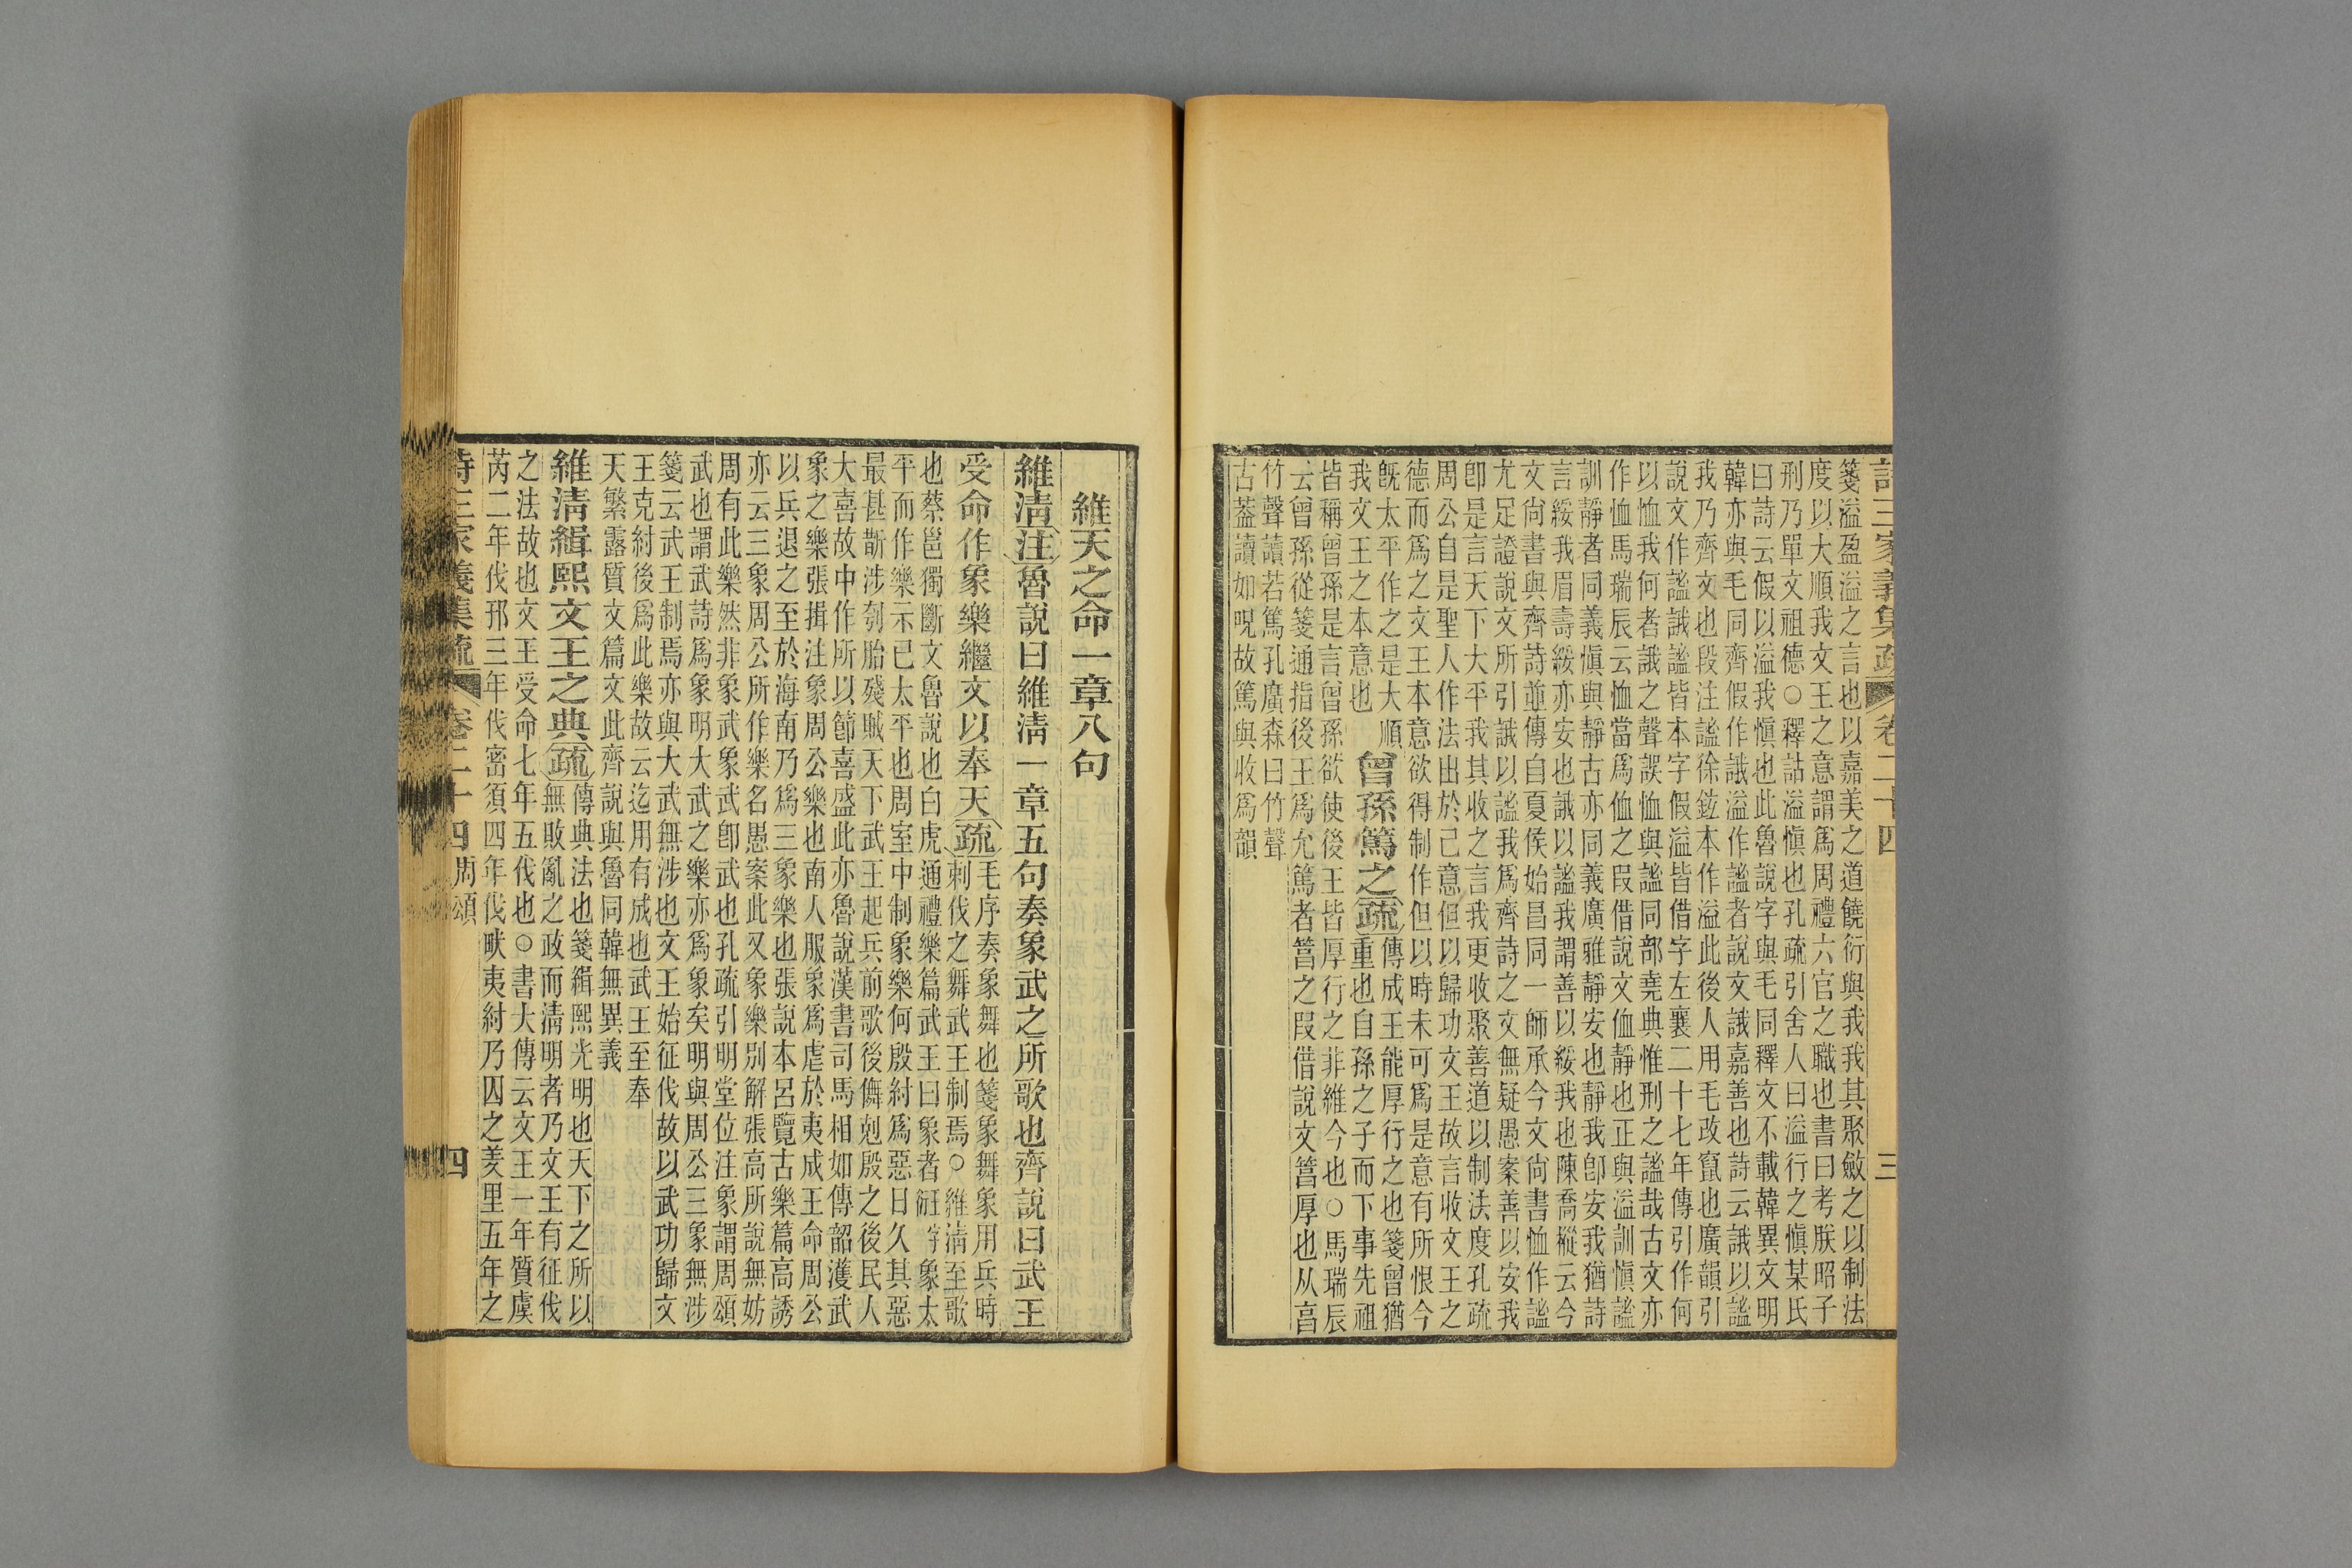 詩三家義集疏 卷二十四 三
箋溢盈溢之言也以嘉美之道饒衍與我我其聚斂之以制法
度以大順我文王之意謂爲周禮六官之職也書曰考朕昭子
刑乃單文祖德○釋詁溢愼也孔疏引舍人曰溢行之愼某氏
曰詩云假以溢我愼也此魯說字與毛同釋文不載韓異文明
韓亦與毛同齊假作誐溢作謐者說文誐嘉善也詩云誐以謐
我乃齊文也段注謐徐鉉本作溢此後人用毛改竄也廣韻引
說文作謐誐謐皆本字假溢皆借字左襄二十七年傳引作何
以恤我何者誐之聲誤恤與謐同部堯典惟刑之謐哉古文亦
作恤馬瑞辰云恤當爲侐之叚借說文侐靜也正與溢訓愼謐
訓靜者同義愼與靜古亦同義廣雅靜安也靜我卽安我猶詩
言綏我眉壽綏亦安也誐以謐我謂善以綏我也陳喬樅云今
文尙書與齊詩並傳自夏侯始昌同一師承今文尙書恤作謐
尤足證說文所引誐以謐我爲齊詩之文無疑愚案善以安我
卽是言天下大平我其收之言我更收聚善道以制法度孔疏
周公自是聖人作法出於己意但以歸功文王故言收文王之
德而爲之文王本意欲得制作但以時未可爲是意有所恨今
旣太平作之是大順
我文王之本意也
曾孫篤之疏
傳成王能厚行之也箋曾猶
重也自孫之子而下事先祖
皆稱曾孫是言曾孫欲使後王皆厚行之非維今也○馬瑞辰
云曾孫從箋通指後王爲允篤者䈞之叚借說文䈞厚也从㐭
竹聲讀若篤孔廣森曰竹聲
古葢讀如呪故篤與收爲韻
維天之命一章八句
維淸注魯說曰維淸一章五句奏象武之所歌也齊說曰武王
受命作象樂繼文以奉天疏
毛序奏象舞也箋象舞象用兵時
刺伐之舞武王制焉○維淸至歌
也蔡邕獨斷文魯說也白虎通禮樂篇武王曰象者象太
平而作樂示已太平也周室中制象樂何殷紂爲惡日久其惡
最甚斮涉刳胎殘賊天下武王起兵前歌後儛剋殷之後民人
大喜故中作所以節喜盛此亦魯說漢書司馬相如傳韶濩武
象之樂張揖注象周公樂也南人服象爲虐於夷成王命周公
以兵退之至於海南乃爲三象樂也張說本呂覽古樂篇高誘
亦云三象周公所作樂名愚案此又象樂別解張高所說無妨
周有此樂然非象武象武卽武也孔疏引明堂位注象謂周頌
武也謂武詩爲象明大武之樂亦爲象矣明與周公三象無涉
箋云武王制焉亦與大武無涉也文王始征伐故以武功歸文
王克紂後爲此樂故云迄用有成也武王至奉
天繁露質文篇文此齊說與魯同韓無異義
維淸緝熙文王之典疏
傳典法也箋緝熙光明也天下之所以
無敗亂之政而淸明者乃文王有征伐
之法故也文王受命七年五伐也○書大傳云文王一年質虞
芮二年伐邘三年伐密須四年伐畎夷紂乃囚之羑里五年之
詩三家義集疏 卷二十四 周頌 四